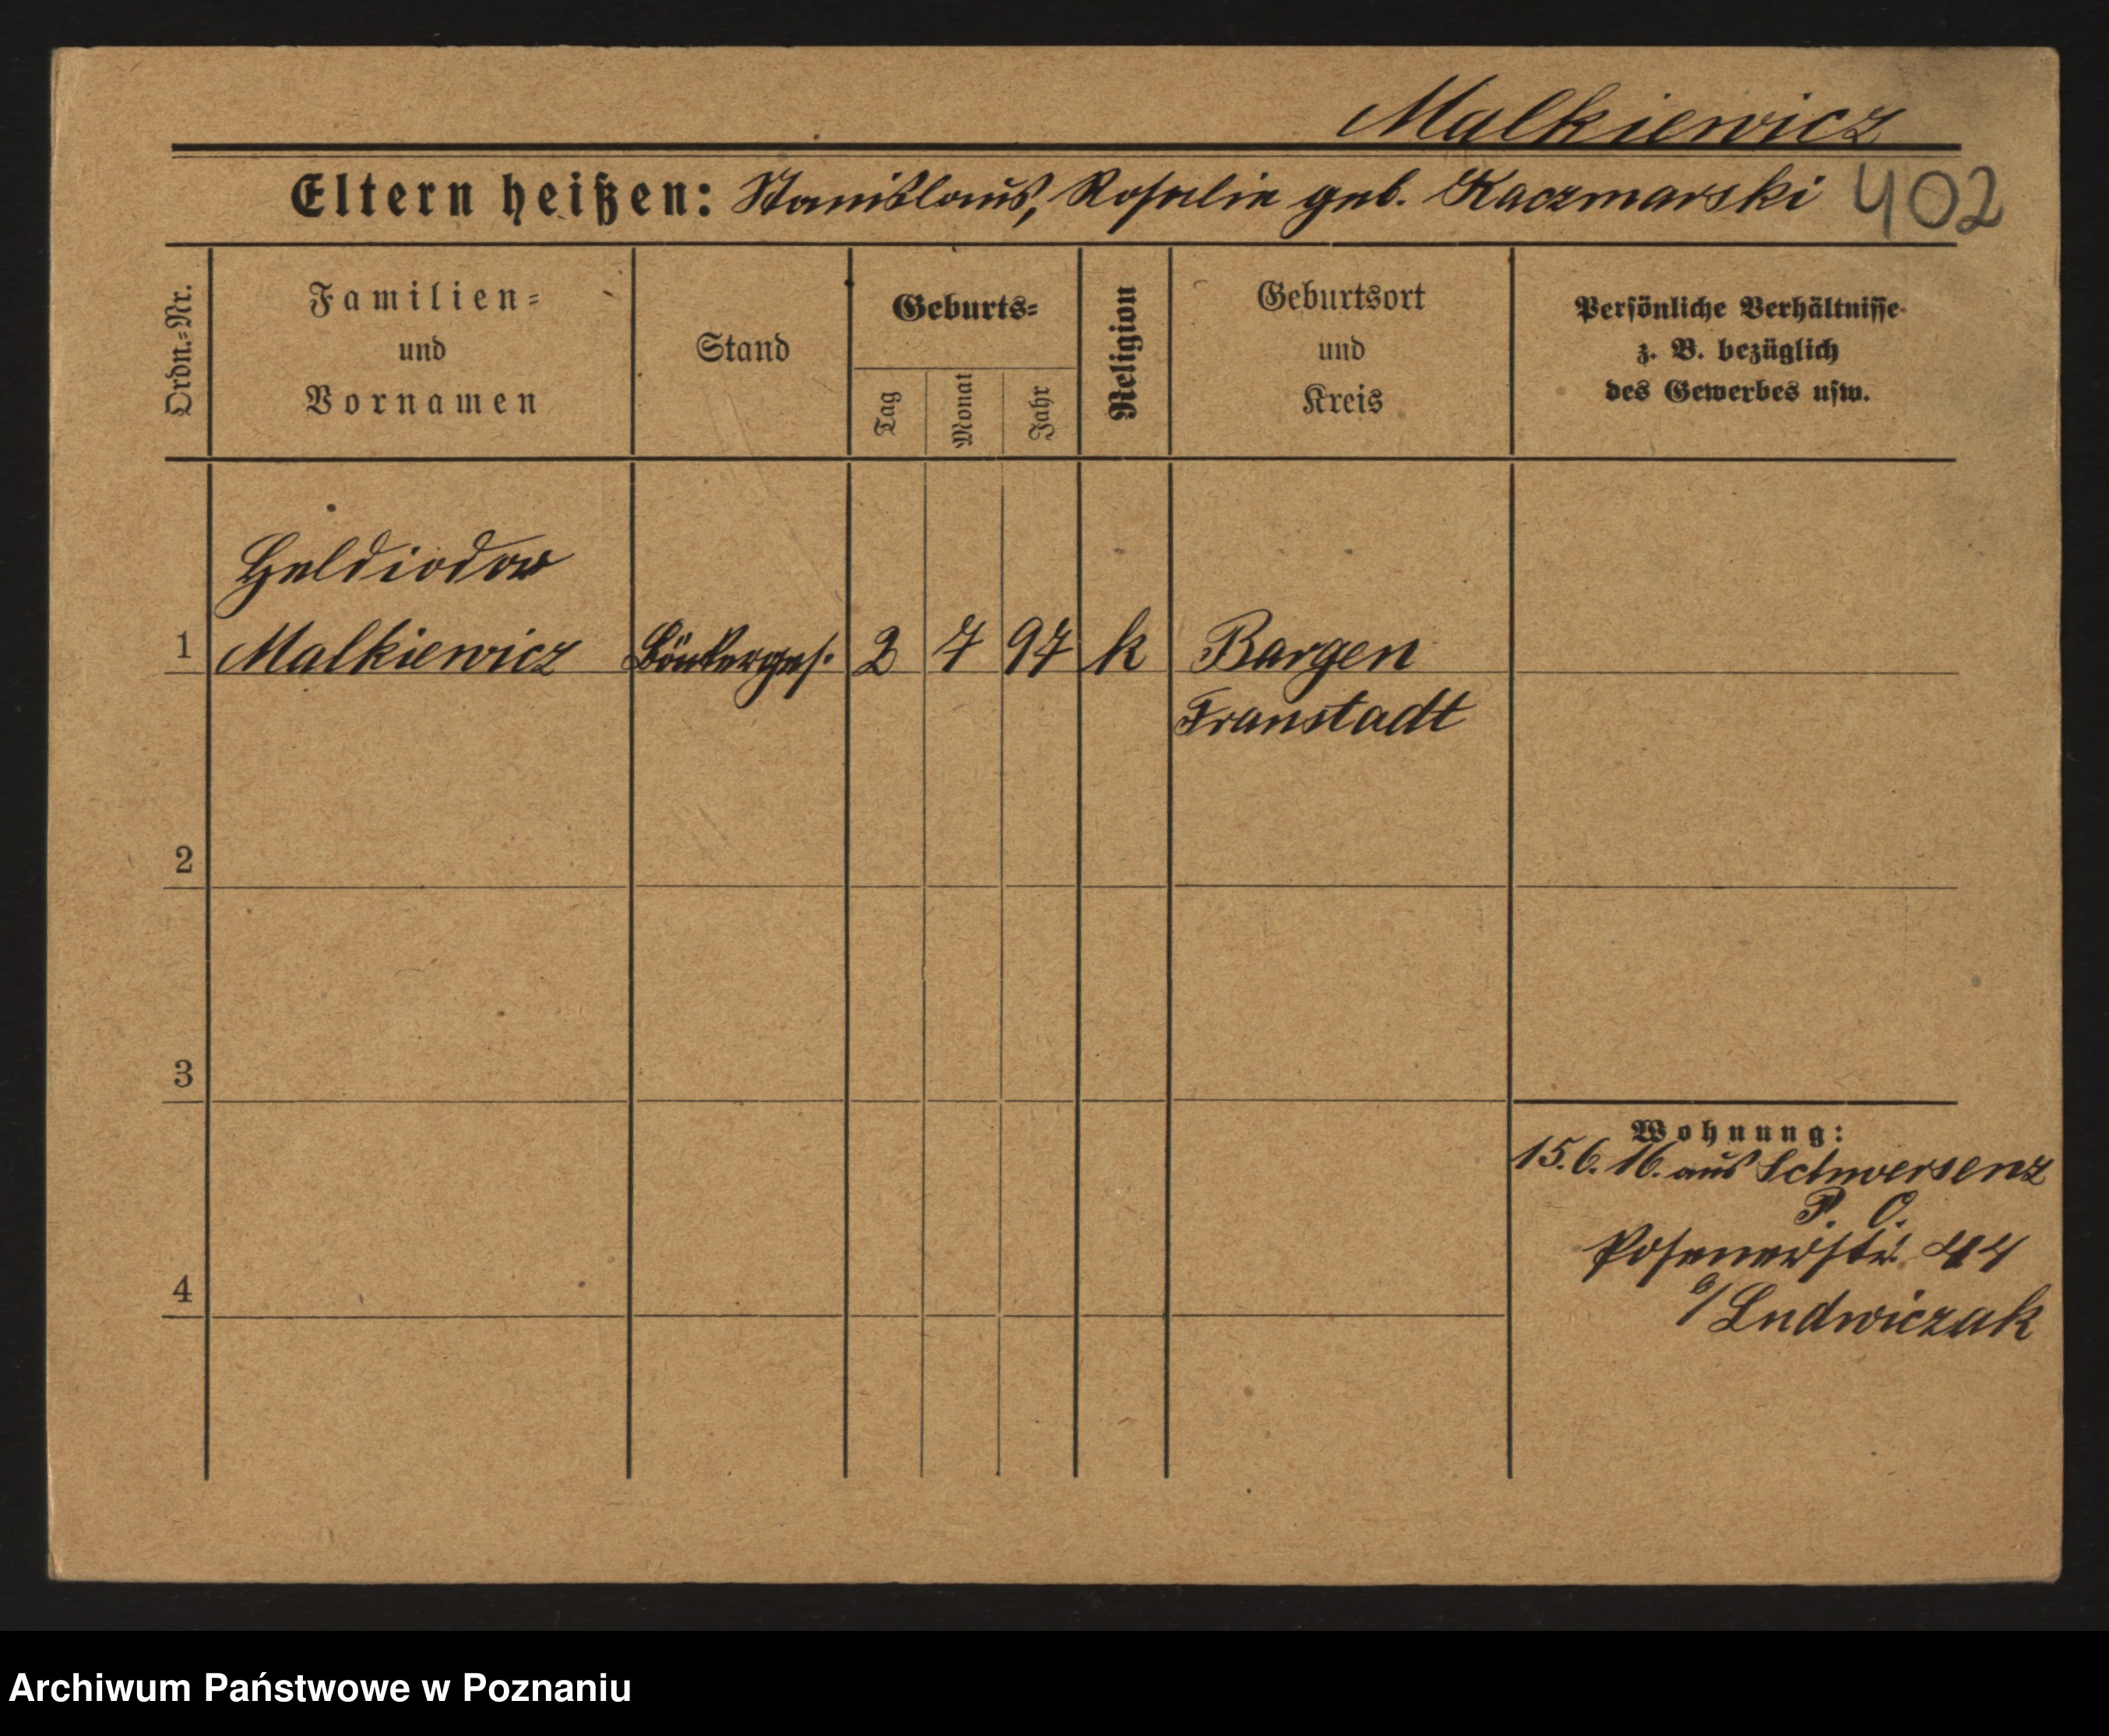 Malkiewicz
Eltern heißen: Stanislaus, Rosalie geb. Kaczmarski 402
Ordn.-Nr.
Familien-
und
Vornamen
Stand
Geburts-
Tag
Monat
Jahr
Religion
Geburtsort
und
Kreis
Persönliche Verhältnisse
z. B. bezüglich
des Gewerbes usw.
Heldiodor
1 Malkiewicz 2 7 97 k Bargen
Fraustadt
2
3
Wohnung:
15.6.16. aus Schwersenz
P. O.
Posenerstr. 44
b/ Ludwiczak
4
Archiwum Państwowe w Poznaniu